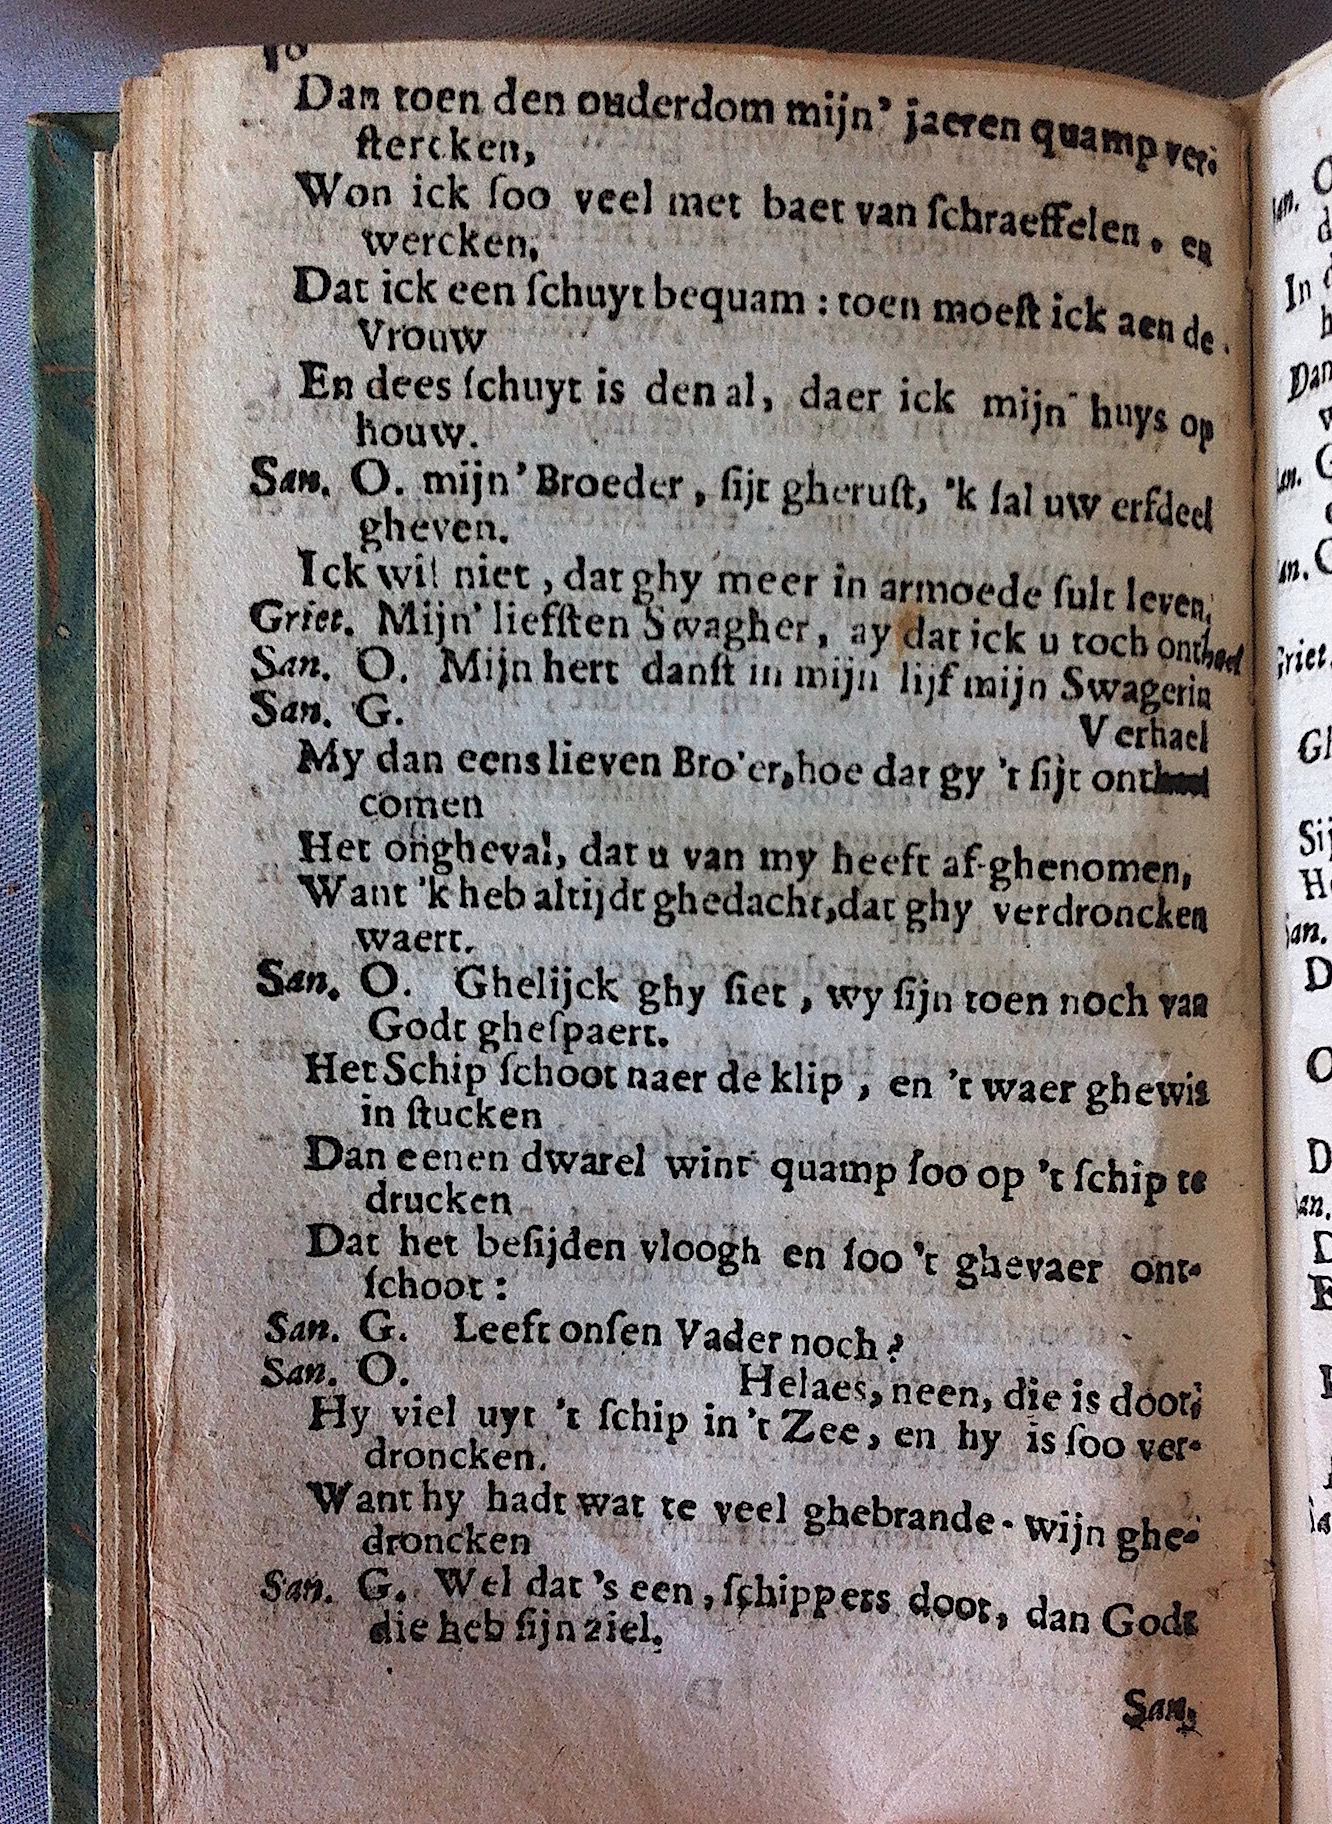 Dan toen den ouderdom mijn' jaeren quamp ver-
stercken,
Won ick soo veel met baet van schraeffelen. en
wercken,
Dat ick een schuyt bequam: toen moest ick aen de
Vrouw
En dees schuyt is den al, daer ick mijn huys op
houw.
San. O. mijn' Broeder, sijt gherust, 'k sal uw erfdeel
gheven.
Ick wil niet, dat ghy meer in armoede sult leven,
Griet. Mijn' liefsten Swagher, ay dat ick u toch ontheel
San. O. Mijn hert danst in mijn lijf mijn Swagerin
San. G. Verhael
My dan eens lieven Bro'er, hoe dat gy 't sijt ont
comen
Het ongheval, dat u van my heeft af-ghenomen,
Want 'k heb altijdt ghedacht, dat ghy verdroncken
waert.
San. O. Ghelijck ghy siet, wy sijn toen noch van
Godt ghespaert.
Het Schip schoot naer de klip, en 't waer ghewis
in stucken
Dan eenen dwarel wint quamp soo op 't schip te
drucken
Dat het besijden vloogh en soo 't ghevaer ont-
schoot:
San. G. Leeft onsen Vader noch?
San. O. Helaes, neen, die is doot;
Hy viel uyt 't schip in 't Zee, en hy is soo ver-
droncken.
Want hy hadt wat te veel ghebrande-wijn ghe-
droncken
San. G. Wel dat 's een, schippers doot, dan Godt
die heb sijn ziel.
San.
In
Dan
Griet.
Sij
San.